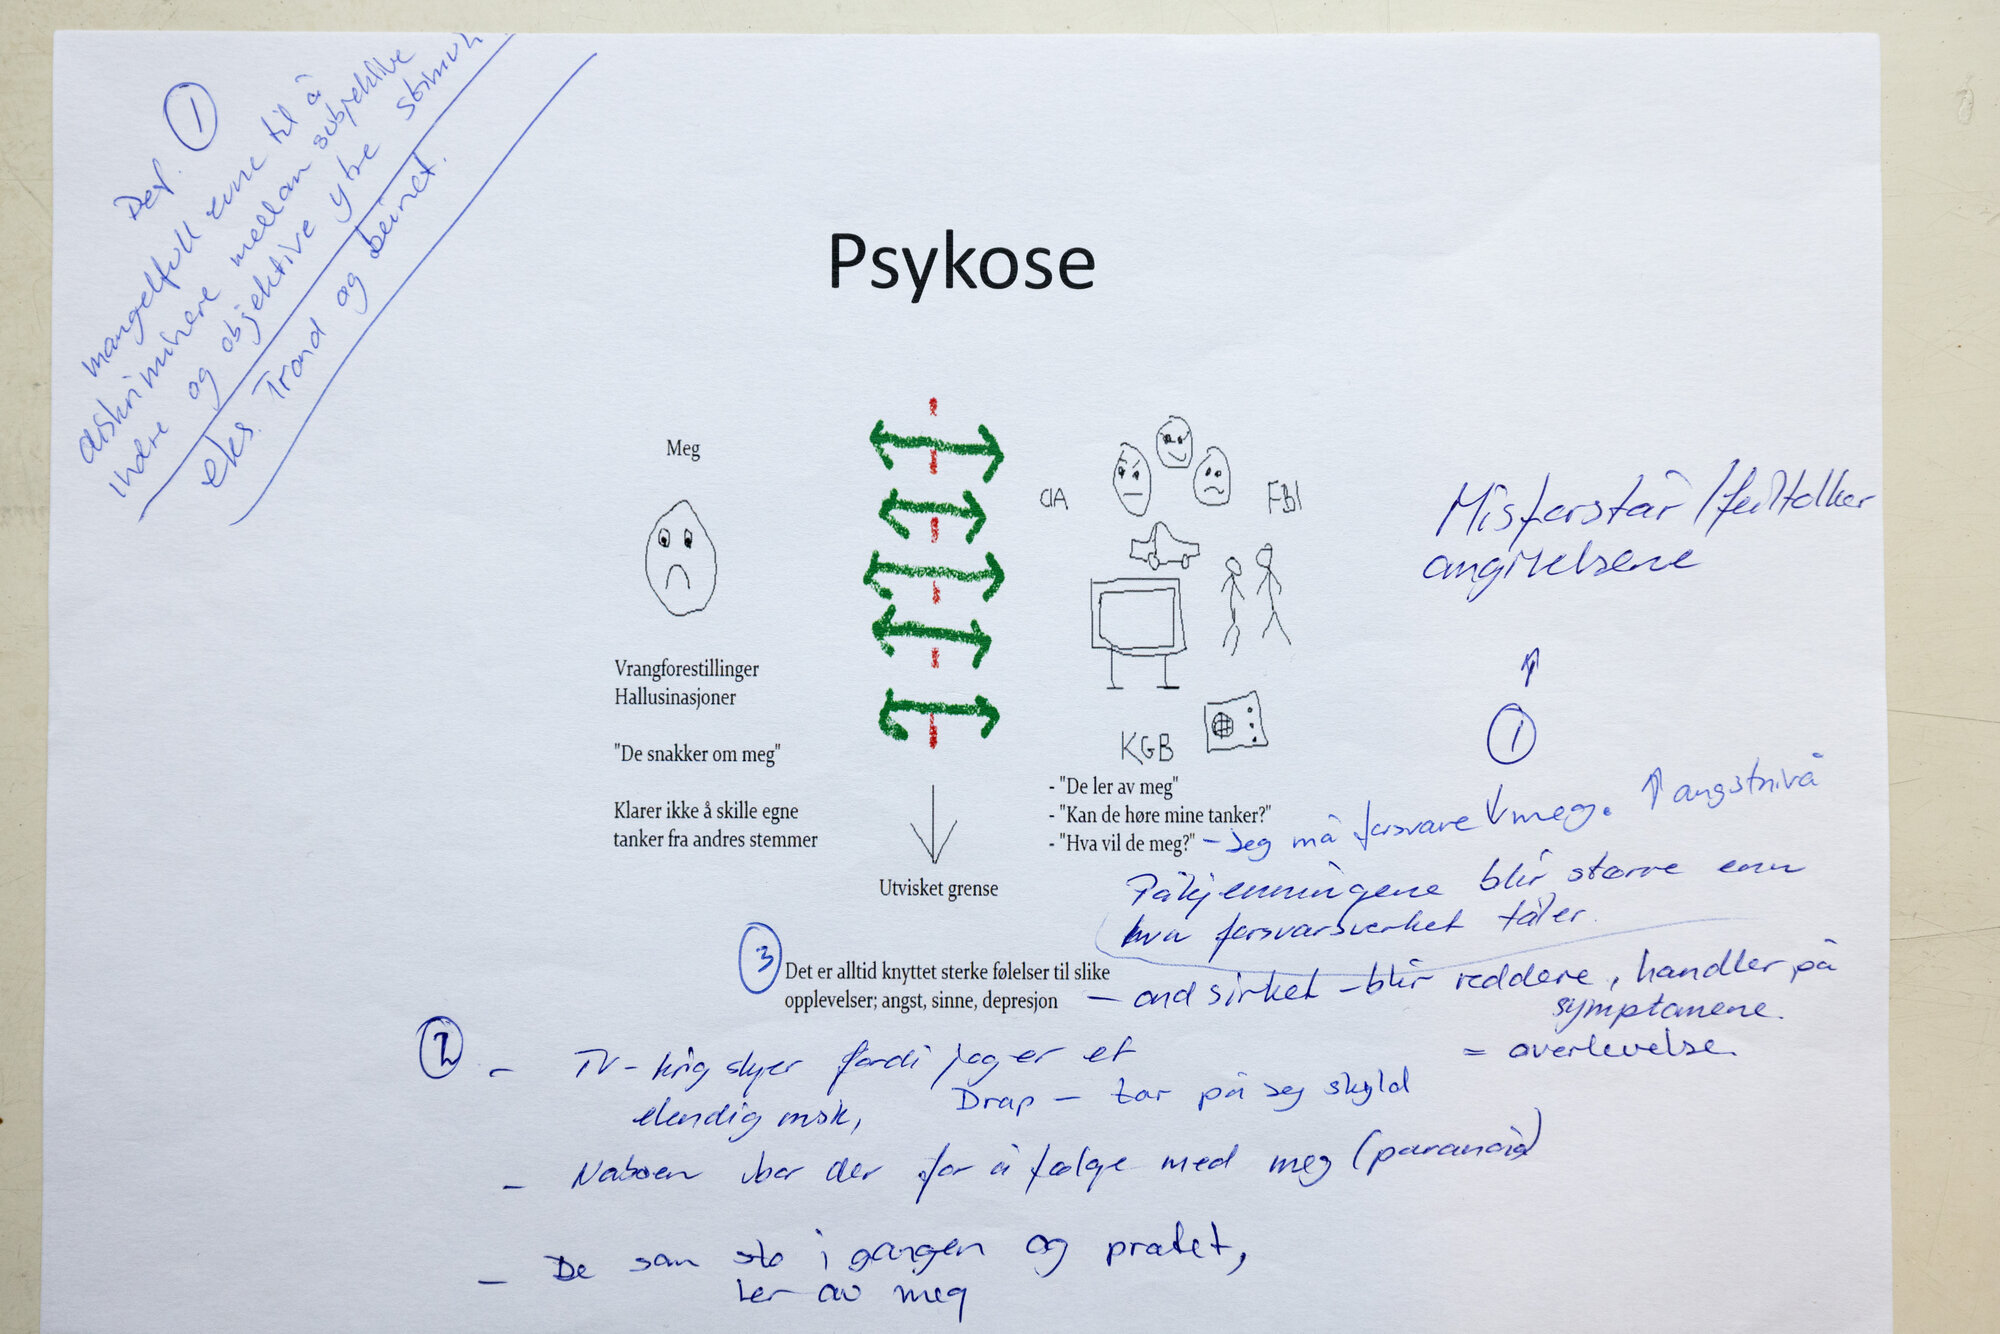 Def. 1
mangelfull evne til å
diskriminere mellan subjektive
indre og objektive ytre stimuli
eks. Trond og beinet.
Psykose
Meg
CIA
FBI
KGB
Vrangforestillinger
Hallusinasjoner
"De snakker om meg"
Klarer ikke å skille egne
tanker fra andres stemmer
Utvisket grense
- "De ler av meg"
- "Kan de høre mine tanker?"
- "Hva vil de meg?" - Jeg må forsvare meg. ↑ angstnivå
Misforstår/feiltolker
angivelsene
↑
1
Påkjenningene blir større enn
hva forsvarsverket tåler.
3 Det er alltid knyttet sterke følelser til slike
opplevelser; angst, sinne, depresjon
- ond sirkel - blir reddere, handler på
symptomene.
= overlevelse.
2
- TV - krig skjer fordi jeg er et
elendig msk, Drap - tar på seg skyld
- Naboen bor der for å følge med meg (paranoid)
- De som sto i gangen og pratet,
ler av meg